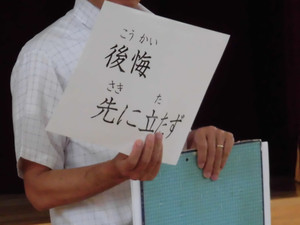 こうかい
後悔
さき た
先に立たず